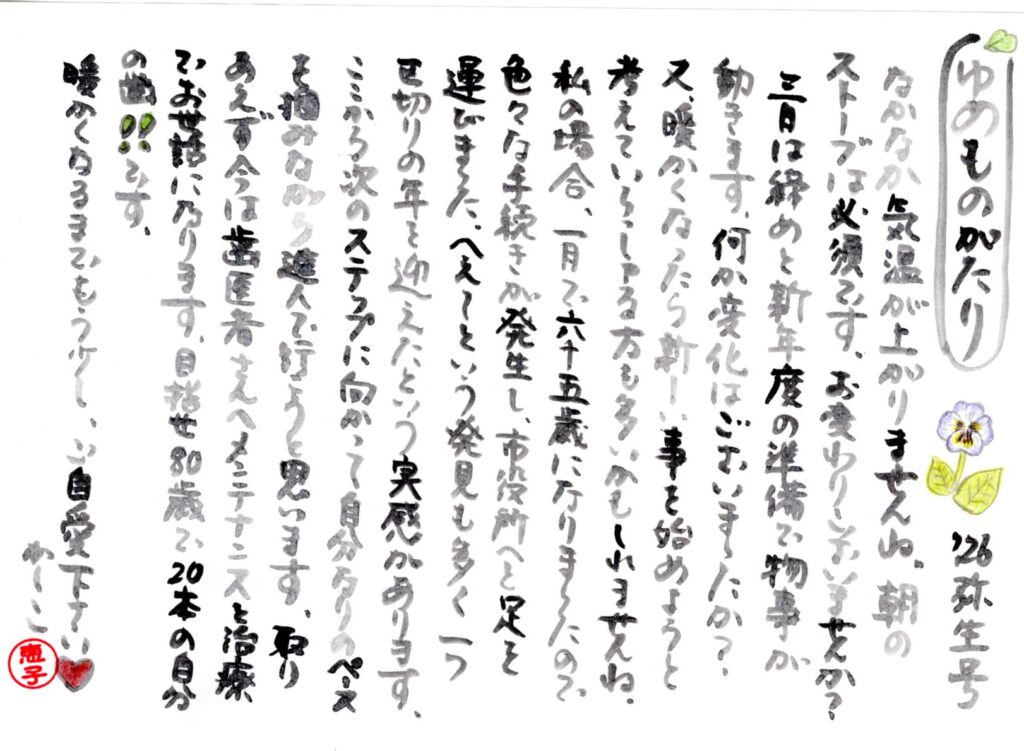 ゆめものがたり
'26 弥生号
なかなか気温が上がりませんね。朝の
ストーブは必須です。お変わりございませんか?
三月は締めと新年度の準備で物事が
動きます。何か変化はございましたか?
又、暖かくなったら新しい事を始めようと
考えていらっしゃる方も多いかもしれませんね。
私の場合、一月で六十五歳になりましたので
色々な手続きが発生し、市役所へと足を
運びました。へぇ〜という発見も多く一つ
区切りの年を迎えたという実感があります。
ここから次のステップに向かって自分なりのペース
を掴みながら進んで行こうと思います。取り
あえず今は歯医者さんへメンテナンスと治療
でお世話になります。目指せ80歳で20本の自分
の歯!!です。
暖かくなるまでもう少し、ご自愛下さい
わーこ
恵子